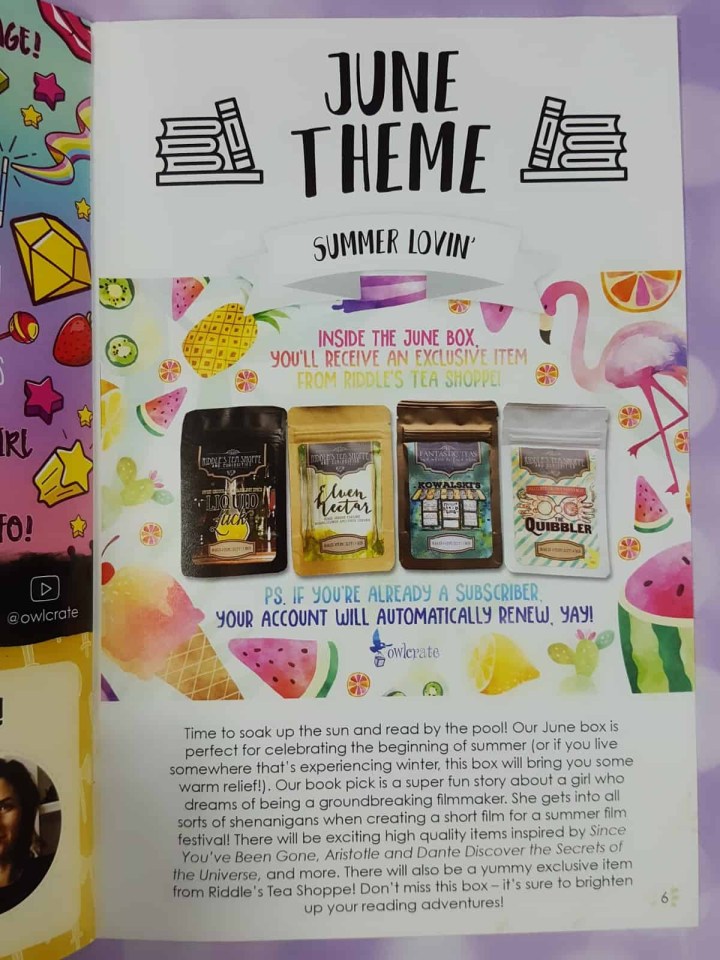 AGE!
IRL
FO!
@owlcrate
!
JUNE
THEME
SUMMER LOVIN'
INSIDE THE JUNE BOX,
YOU'LL RECEIVE AN EXCLUSIVE ITEM
FROM RIDDLE'S TEA SHOPPE!
RIDDLE'S TEA SHOPPE
LIQUID
Luck
RIDDLE'S TEA SHOPPE
Elven
Nectar
FANTASTIC TEAS
KOWALSKI'S
RIDDLE'S TEA SHOPPE
THE
QUIBBLER
PS. IF YOU'RE ALREADY A SUBSCRIBER,
YOUR ACCOUNT WILL AUTOMATICALLY RENEW, YAY!
owlcrate
Time to soak up the sun and read by the pool! Our June box is
perfect for celebrating the beginning of summer (or if you live
somewhere that's experiencing winter, this box will bring you some
warm relief!). Our book pick is a super fun story about a girl who
dreams of being a groundbreaking filmmaker. She gets into all
sorts of shenanigans when creating a short film for a summer film
festival! There will be exciting high quality items inspired by Since
You've Been Gone, Aristotle and Dante Discover the Secrets of
the Universe, and more. There will also be a yummy exclusive item
from Riddle's Tea Shoppe! Don't miss this box – it's sure to brighten
up your reading adventures!
6